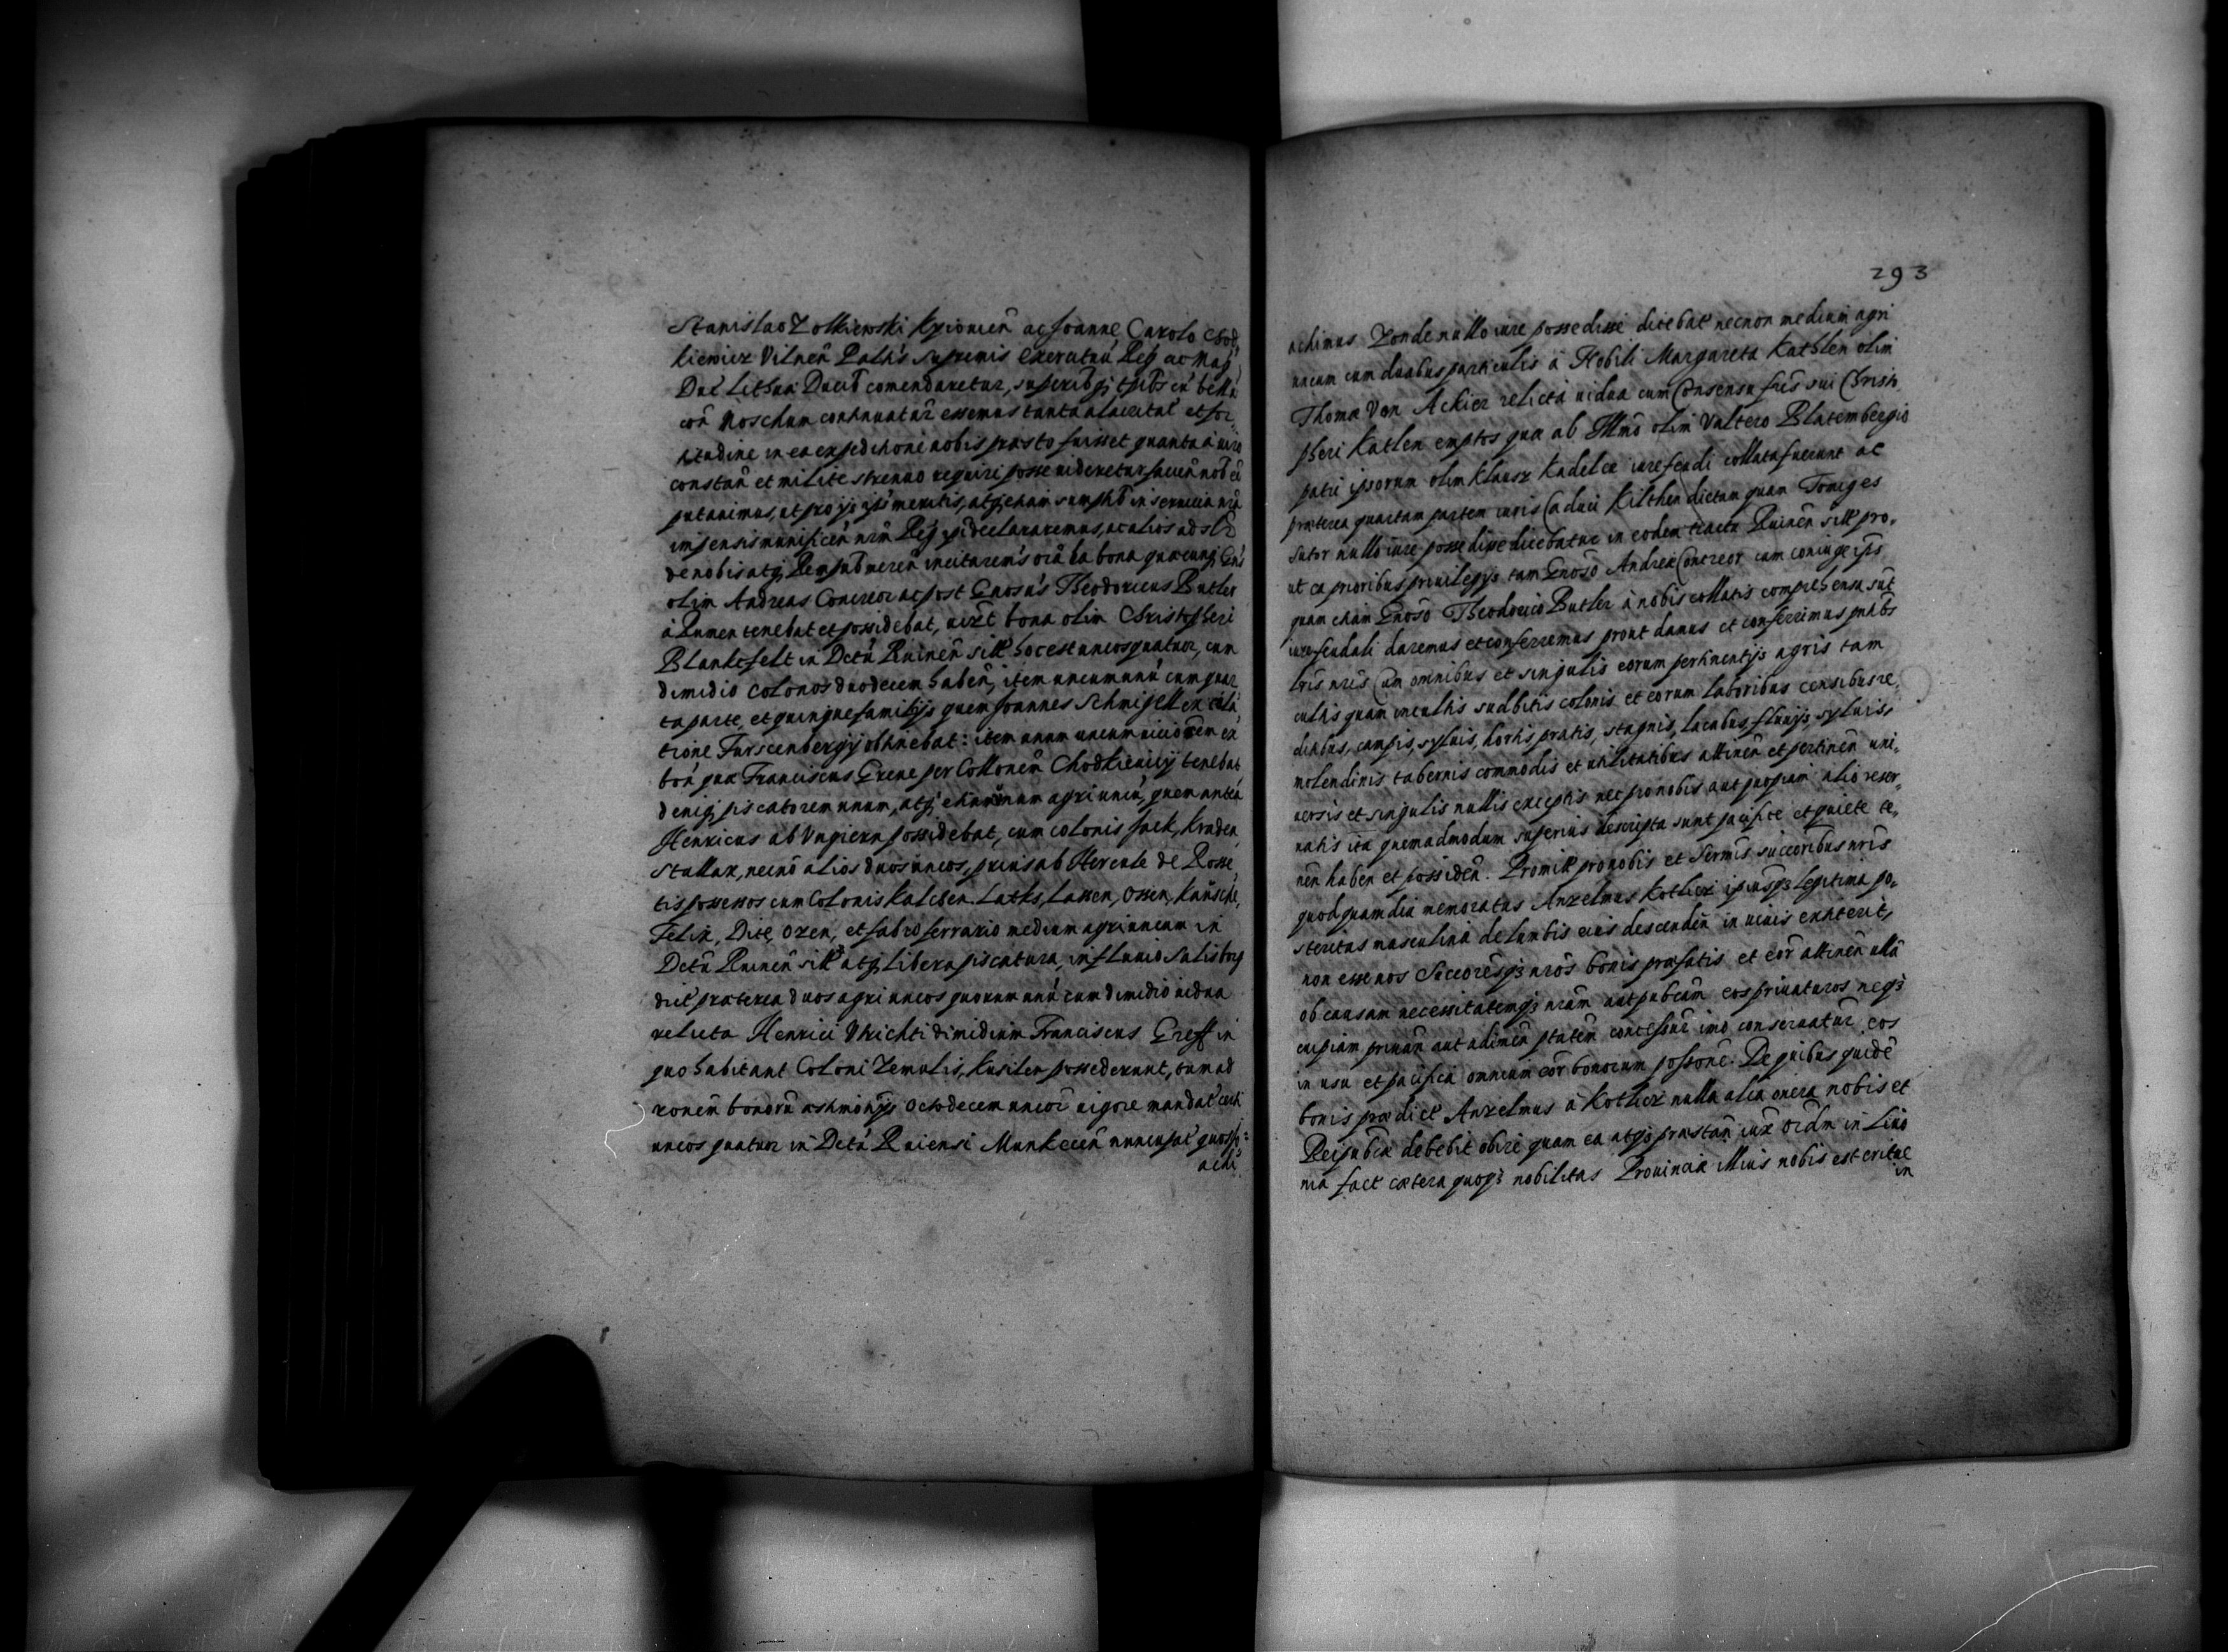 Stanislao Zolkiewski Kyiouień ac Joanne Carolo Chod,
kiewicz Vilneń Palnis supremis exercituū Regni ac Mag
Duc̃ Lithua: Ducib̃ comendaretur,
con̄ Moschum continuatur̃ essemus tanta alacritate et for,
titudine in ea expeditione nobis præsto fuisset quanta á uiro
constań et milite strenuo requiri posse uideretur,
putauimus, ut pro ijs meritis, atq etiam sumptib̃ in seruitia nr̃a
impensis munificeń nr̃am Reg̃ ei declararemus, ac alios ad
de nobis atq Repub̃ incitaremus ea bona quæcunq Gñs
olim Andreas Concreor ac post Gnosus Theodoricus Butler
á Rumen tenebat et possidebat, uizt bona olim Christopheri
Blankefelt in Dctũ Ruineń sitt hoc est uncos quatuor, cum
dimidio colonos duodecem habeń, item uncum unū cum quar
ta parte, et quinque familijs quem Joannes Schmigell ex colla,
tione Furscenbergij obtinebat: item unum uncum ex
boń quæ Franciscus Grene per Collonem Chodkieuicij tenebat
deniq piscatorem unum, atq etiam unum agri uncū, quem anteá
Henricus ab Vngiern possidebat, cum colonis Jack, Kraden,
Stallax, necnō alios duos uncos, prius ab Hercule de Rosse,
tis possessos cum Colonis Kalcben. Laths, Lassen, Ossen, Kausche,
Felix, Dite, Oxen, et fabro ferrario medium agri uncum in
Dctũ Ruineń sitt atq libera piscatura, in fluuio Salisborg
dict̃ præterea duos agri uncos quorum unū cum dimidio uidua
relicta Henrici Vhrichti dimidium Franciscus Greff in
quo habitant Coloni Zemulis, Kusilen possederunt, tum ad
roneḿ bonorũ octodecem uncor̃ uigore mandat̃
uncos quatuor in Dctũ Ruiensi Munkeceń nuncupat̃ quos
acdi
293
acdimus Zonde nullo iure possedisse dicebat̃ necnon medium agri
uncum cum duabus particulis á Nobili Margareta Kathlen olim
Thomæ Von Ackier relicta uidua cum Consensu fr̃is sui Christo,
pheri Katlen emptos quæ ab Illm̃o olim Valtero Blatembergio
patri ipsorum olim Klausz Kadelce iure feudi collata fuerunt ac
præterea quartam partem iuris Caduci Kilthen dictam quam Tomges
sutor nullo iure possedisse dicebatur in eodem tractu Ruineń sitt pro,
ut ea prioribus priuilegijs tam Gnoso Andreæ Concreor cum coniuge ip̃s
quam etiam Gnoso Theodorico Butler á nobis collatis comprehensa sut̃
iure feudali daremus et conferremus prout damus et conferimus pntib̃s
lr̃is nr̃is Cum omnibus et singulis eorum pertinentijs agris tam
cultis quam incultis sudbitis colonis et eorum laboribus censibus re,
ditibus, campis, syluis, hortis pratis, stagnis, lacubus, fluuijs, syluis,
molendinis tabernis commodis et utilitatibus attineń et pertineń uni,
uersis et singulis nullis exceptis nec pro nobis aut quopiam alio reser,
uatis ita quemadmodum superius descripta sunt pacifice et quiete te,
neń haben et possideń. Promitt̃ pro nobis et Serm̃is successoribus nr̃is
quod quamdiu memoratus Anzelmus Kotlier ipsiusq3 legitima po,
steritas masculina de lumbis eius descendeń in uiuis extiterit,
non esse nos Succoresq3 nr̃os bonis præfatis et eor̃ attineń ulla
ob causam necessitatemq3 nr̃am aut pub̃cam eos priuaturos neq3
cuipiam priuań aut adimeń ptatem̃ concessur̃ imo conseruatur̃ eos
in usu et pacifica omnium eor̃ bonorum possone. De quibus quidē
bonis prædict̃ Anzelmus á Kotlier nulla alia onera nobis et
Reipub̃cæ debebit obire quam ea atq3 præstań iux̃ ordm̃ in Liuo
nia fact̃ cætera quoq3 nobilitas Prouinciæ illius nobis est eritue
in